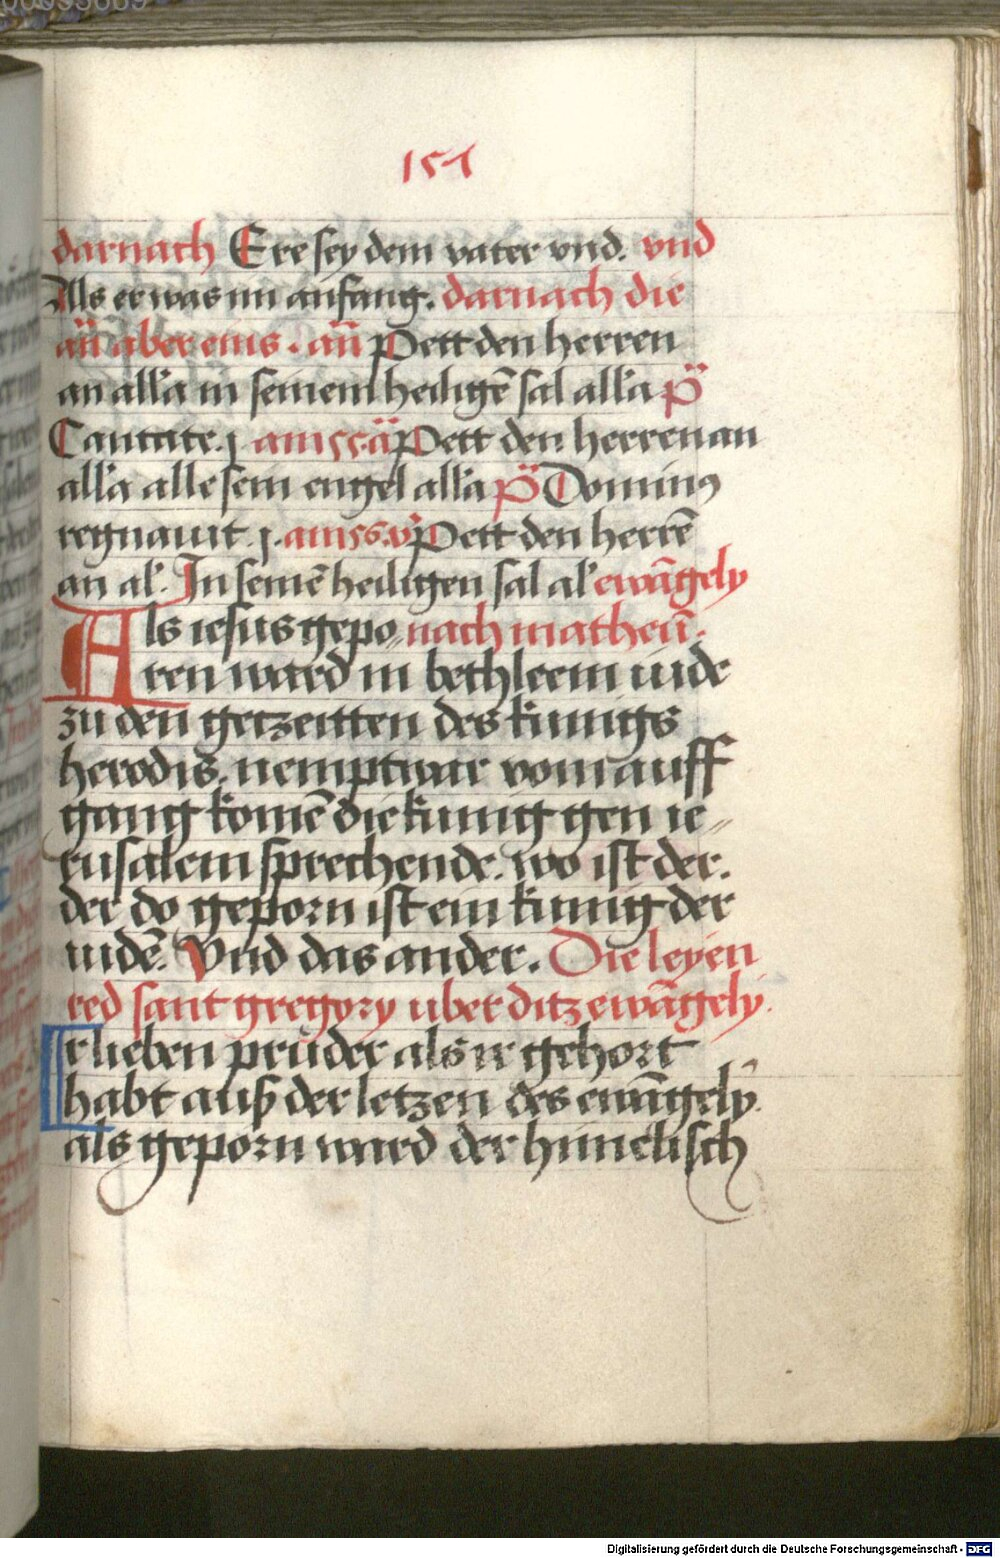 151
darnach Ere sey dem vater vnd. vnd
Als er was im anfang. darnach die
an̄ aber eins. an̄ Pett den herren
an all'a in seinem heiligē sal all'a p̄s
Cantate. j am 155. ā Pett den herren an
all'a alle sein engel all'a p̄s Dominus
regnauit. j. am 156. v̄ Pett den herrē
an al'. In seinē heiligen sal al' ewāgely
Als iesus gepo nach matheū.
ren ward in bethleem iude
zu den getzeitten des kunigs
herodis. nempt war vom auff
gang komē die kunig gen ie
rusalem sprechende. wo ist der.
der do geporn ist ein kunig der
iudē. Vnd das ander. Die leyen
red sant gregory uber ditz ewāgely.
Ir lieben prüder als ir gehort
habt auß der letzen des ewāgely.
als geporn ward der himelisch
Digitalisierung gefördert durch die Deutsche Forschungsgemeinschaft - DFG